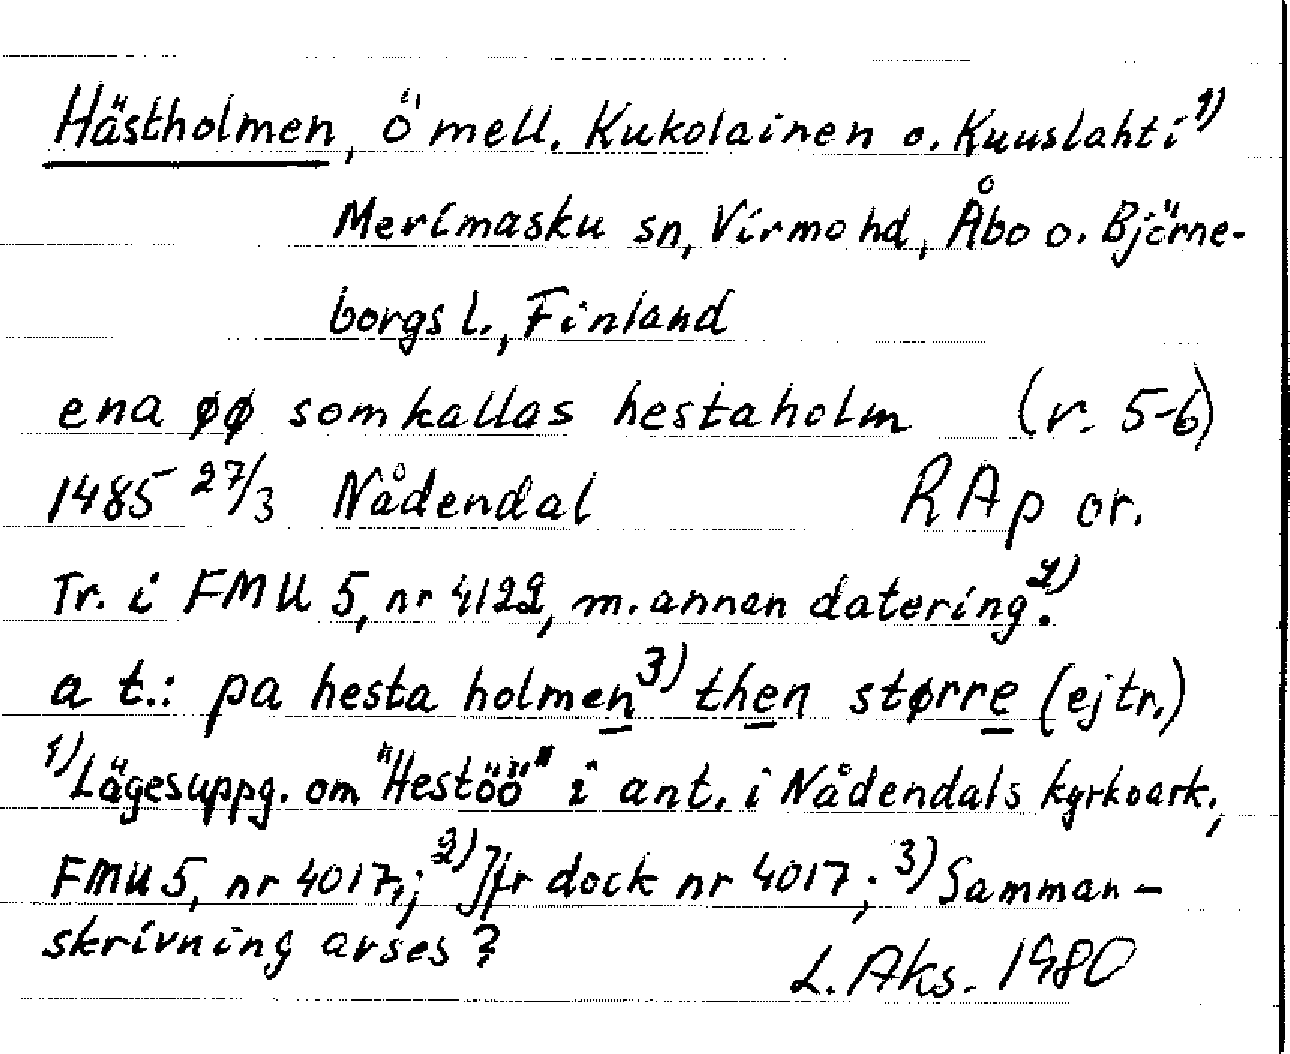 Hästholmen, ö mell. Kukolainen o. Kuuslahti 1)
Merimasku sn, Virmo hd, Åbo o. Björne-
borgs l., Finland
ena øø som kallas hestaholm (r. 5-6)
1485 27/3 Nådendal RAp or.
Tr. i FMU 5, nr 4122, m. annan datering. 2)
a t.: pa hesta holmen 3) then større (ej tr.)
1) Lägesuppg. om "Hestöö" i ant. i Nådendals kyrkoark.,
FMU 5, nr 4017,; 2) Jfr dock nr 4017; 3) Samman-
skrivning avses?
L. Aks. 1980